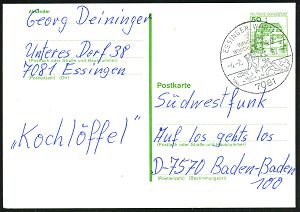 Absender
Georg Deininger
Unteres Dorf 38
(Postfach oder Straße und Hausnummer)
7081 Essingen
(Postleitzahl) (Ort)
„Kochlöffel"
50
ESSINGEN
7081
Postkarte
Südwestfunk
Auf los gehts los
(Postfach oder Straße und Hausnummer)
D-7570 Baden-Baden
(Postleitzahl) (Bestimmungsort)
100